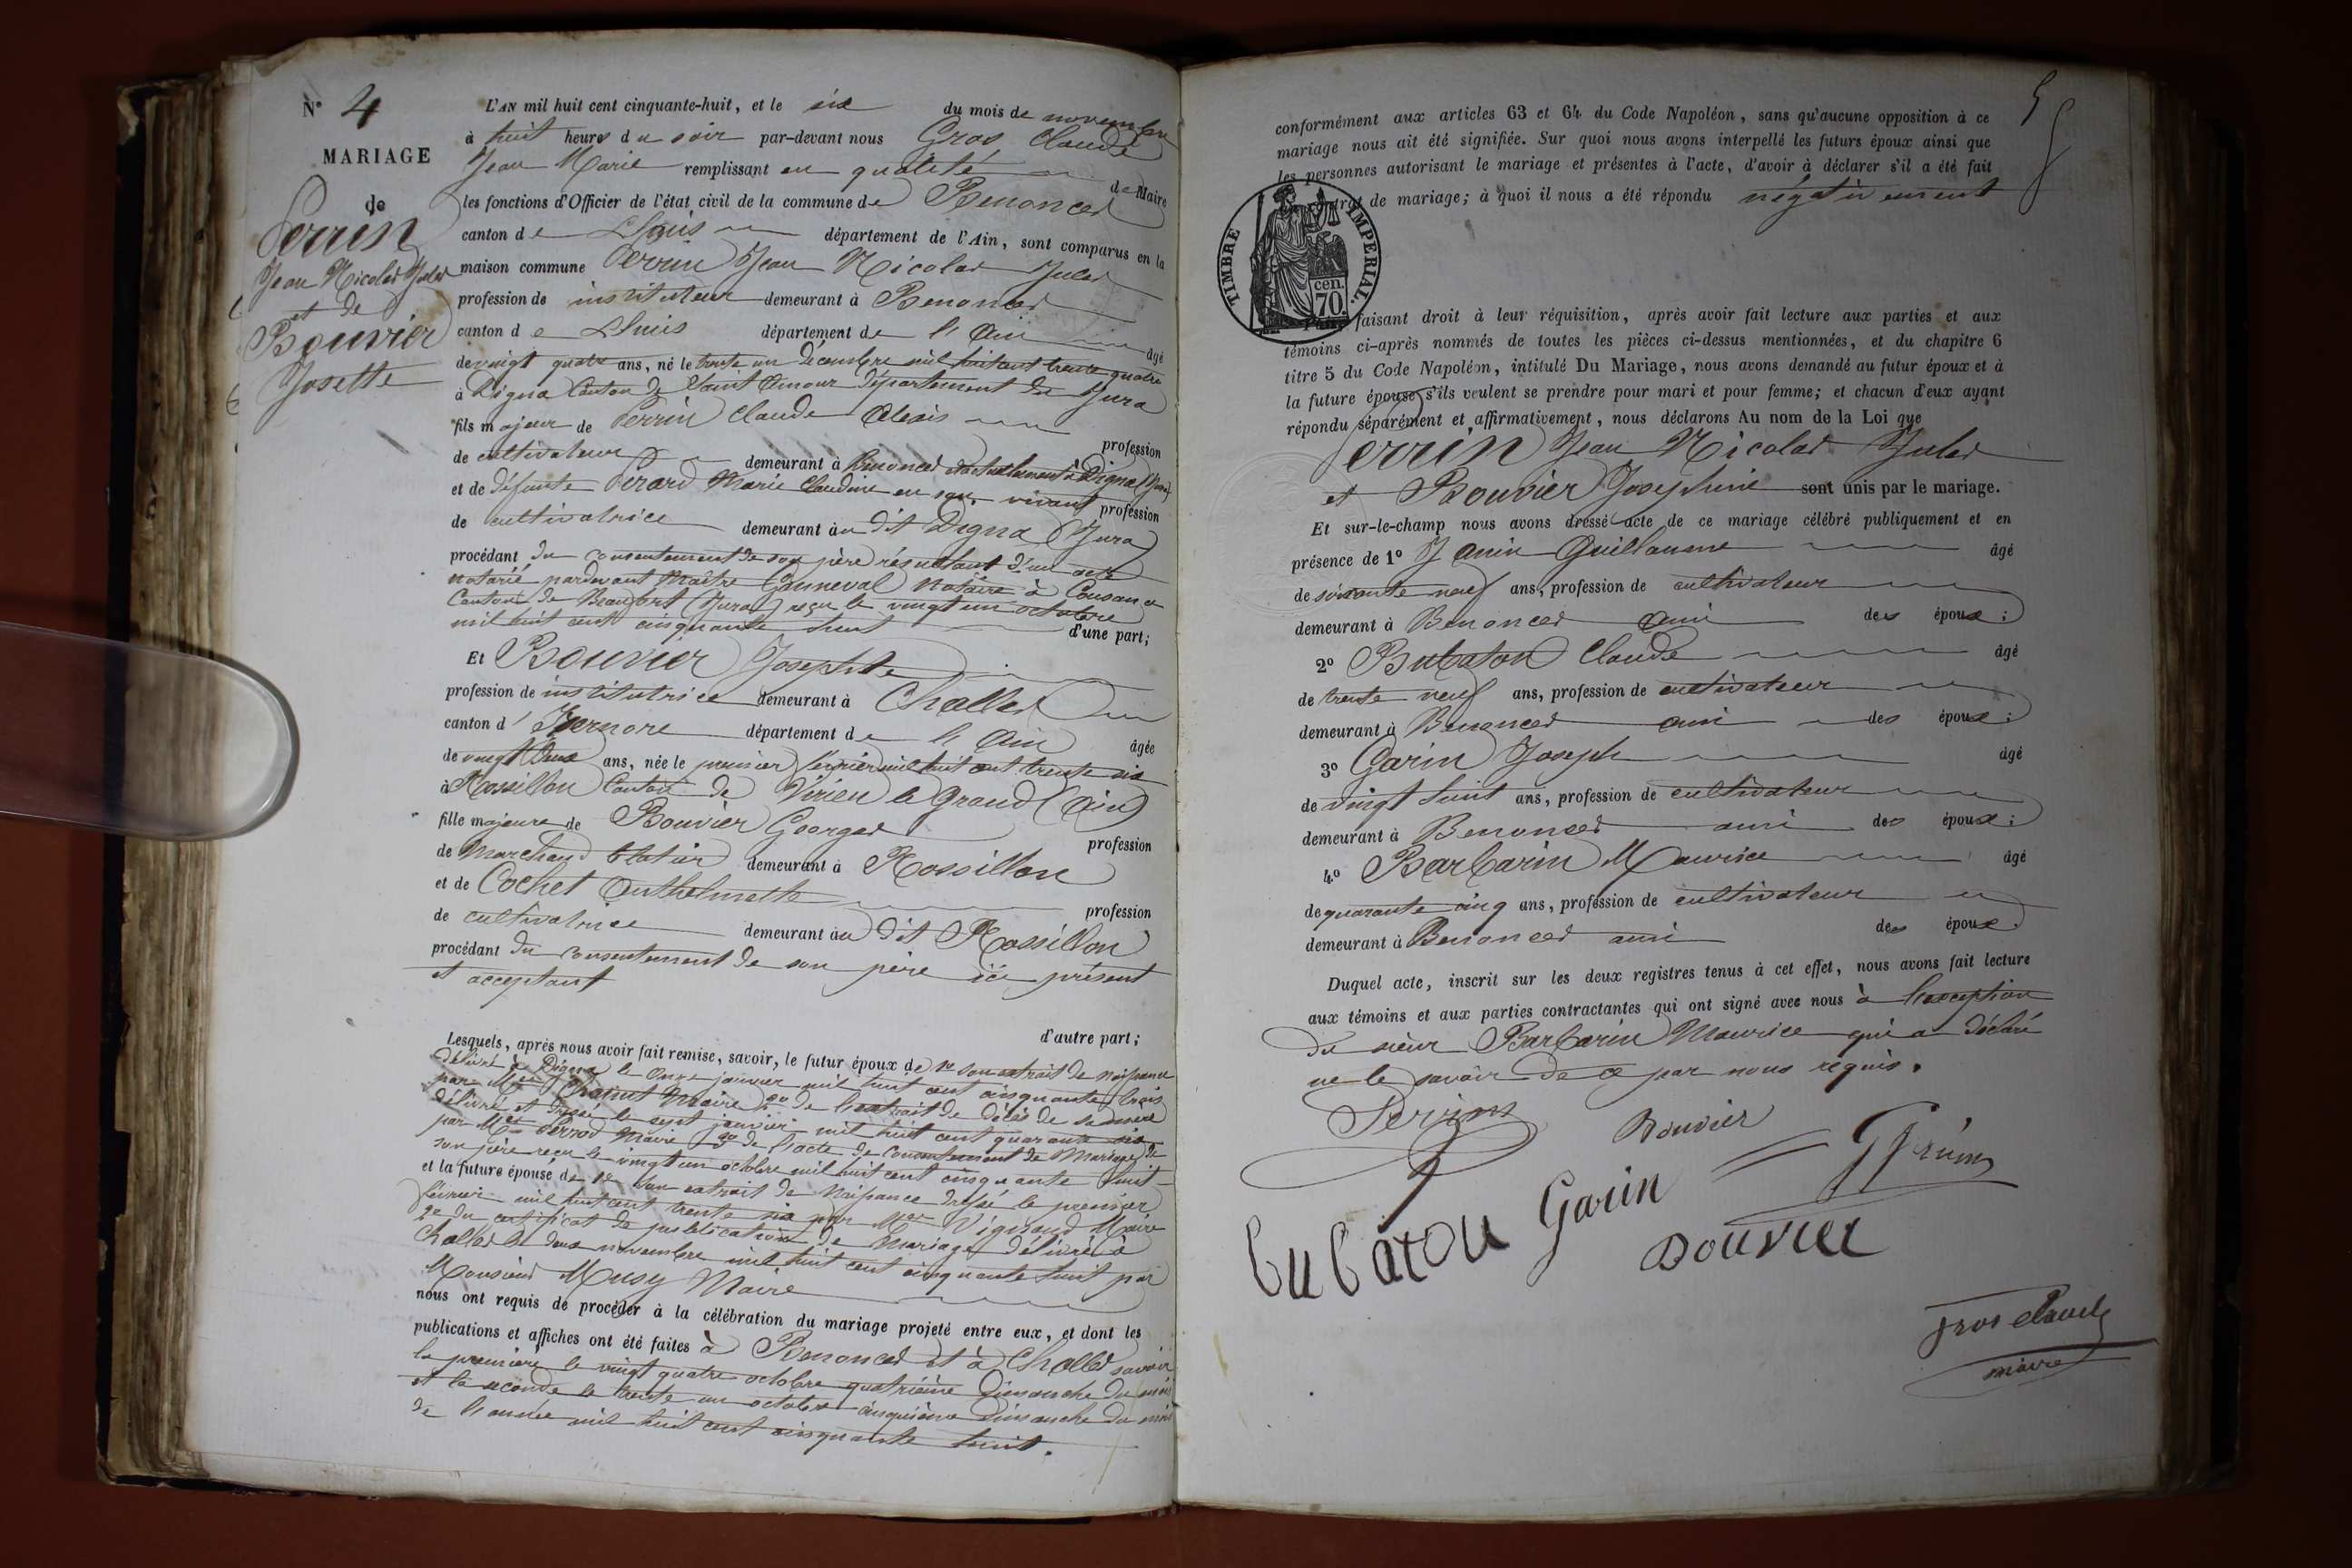 N° 4
MARIAGE
de
Perrin
Jean Nicolas Jules
et de
Bouvier
Josette
L'AN mil huit cent cinquante-huit, et le six du mois de novembre
à huit heures du soir par-devant nous Gros Claude
Jean Marie remplissant en qualité de Maire
les fonctions d'Officier de l'état civil de la commune de Benonces
canton de Lhuis département de l'Ain, sont comparus en la
maison commune Perrin Jean Nicolas Jules
profession de instituteur demeurant à Benonces
canton de Lhuis département de l'Ain âgé
de vingt quatre ans, né le trente un décembre mil huit cent trente quatre
à Digna Canton de Saint Amour Département du Jura
fils majeur de Perrin Claude Alexis profession
de cultivateur demeurant à Benonces actuellement à Digna (Jura)
et de défunte Perard Marie Claudine en son vivant profession
de cultivatrice demeurant au dit Digna (Jura)
procédant du consentement de son père résultant d'un acte
notarié pardevant Maître Ganneval Notaire à Cousance
Canton de Beaufort (Jura) reçu le vingt un octobre
mil huit cent cinquante huit d'une part;
Et Bouvier Josephte
profession de institutrice demeurant à Challes
canton d'Izernore département de l'Ain âgée
de vingt deux ans, née le premier février mil huit cent trente six
à Rossillon Canton de Virieu le Grand (Ain)
fille majeure de Bouvier Georges profession
de Marchand blatier demeurant à Rossillon
et de Cochet Anthelmette profession
de cultivatrice demeurant au dit Rossillon
procédant du consentement de son père ici présent
et acceptant
d'autre part;
Lesquels, après nous avoir fait remise, savoir, le futur époux de 1e son extrait de naissance
délivré à Digna le onze janvier mil huit cent cinquante trois
par Mer Maire 2e de l'extrait de décès de sa mère
délivré et dressé le sept janvier mil huit cent quarante six
par Mer Perrod Maire 3e de l'acte de consentement de Mariage de
son père reçu le vingt un octobre mil huit cent cinquante huit
et la future épouse de 1e son extrait de Naissance dressé le premier
février mil huit cent trente six par Mer Vignaud Maire
2e du certificat de publication de Mariage délivré à
Challes le deux novembre mil huit cent cinquante huit par
Monsieur Musy Maire
nous ont requis de procéder à la célébration du mariage projeté entre eux, et dont les
publications et affiches ont été faites à Benonces et à Challes savoir
la première le vingt quatre octobre quatrième Dimanche du mois
et la seconde le trente un octobre cinquième Dimanche du mois
de l'année mil huit cent cinquante huit.
5
conformément aux articles 63 et 64 du Code Napoléon, sans qu'aucune opposition à ce
mariage nous ait été signifiée. Sur quoi nous avons interpellé les futurs époux ainsi que
les personnes autorisant le mariage et présentes à l'acte, d'avoir à déclarer s'il a été fait
contrat de mariage; à quoi il nous a été répondu négativement
TIMBRE IMPERIAL.
cen. 70.
faisant droit à leur réquisition, après avoir fait lecture aux parties et aux
témoins ci-après nommés de toutes les pièces ci-dessus mentionnées, et du chapitre 6
titre 5 du Code Napoléon, intitulé Du Mariage, nous avons demandé au futur époux et à
la future épouse s'ils veulent se prendre pour mari et pour femme; et chacun d'eux ayant
répondu séparément et affirmativement, nous déclarons Au nom de la Loi que
Perrin Jean Nicolas Jules
et Bouvier Josephine sont unis par le mariage.
Et sur-le-champ nous avons dressé acte de ce mariage célébré publiquement et en
présence de 1° Janin Guillaume âgé
de soixante neuf ans, profession de cultivateur
demeurant à Benonces ami des époux;
2° Bubaton Claude âgé
de trente neuf ans, profession de cultivateur
demeurant à Benonces ami des époux;
3° Garin Joseph âgé
de vingt huit ans, profession de cultivateur
demeurant à Benonces ami des époux;
4° Barbarin Maurice âgé
de quarante cinq ans, profession de cultivateur
demeurant à Benonces ami des époux.
Duquel acte, inscrit sur les deux registres tenus à cet effet, nous avons fait lecture
aux témoins et aux parties contractantes qui ont signé avec nous à l'exception
du sieur Barbarin Maurice qui a déclaré
ne le savoir de ce par nous requis.
Perrin
Bouvier
bubatou Garin
Bouvier
gros claude
maire